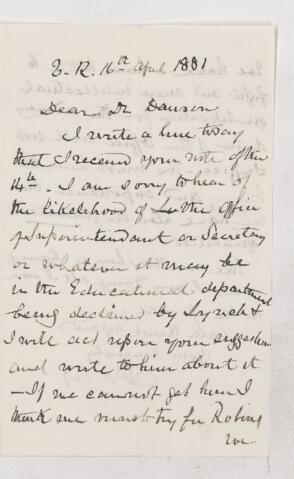 T. R. 16th April 1881
Dear Dr Dawson
I write a line today
that I received your note of the
14th. I am sorry to hear of
the likelihood of the office
of Superintendent or Secretary
or whatever it may be
in the Educational department
being declined by Lynch &
I will act upon your suggestion
and write to him about it
— If we cannot get him I
think we must try for Robins
we